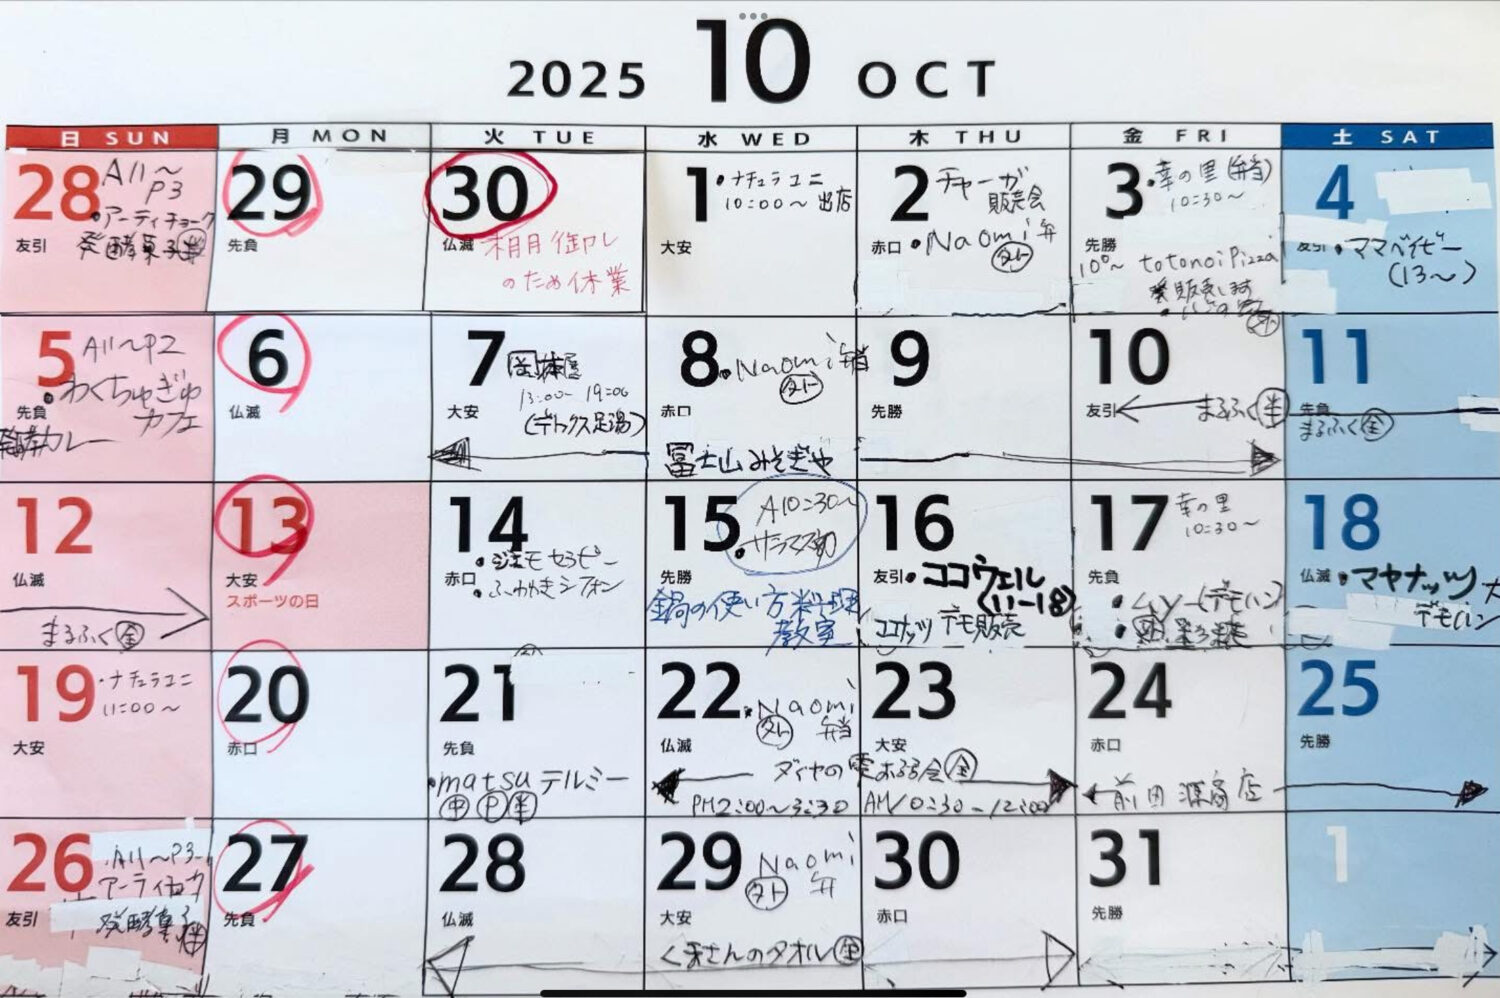 2025 10 OCT
日 SUN 月 MON 火 TUE 水 WED 木 THU 金 FRI 土 SAT
28 A11～
P3
・アーティチョーク
友引 発酵菓子
29
先負
30
仏滅 棚卸し
のため休業
1 ・ナチュラユニ
10:00～出店
大安
2 チャーガ
販売会
赤口 ・Naomi弁
外
3 ・幸の里(弁当)
10:30～
先勝
10°～ totonoiPizza
販売します
外
4
友引 ・ママベイビー
(13～)
5 A11～P2
・わくちゅぎゅ
先負 カフェ
発酵カレー
6
仏滅
7
13:00～19:00
大安 (デトックス足湯)
8 ・Naomi弁当
赤口 外
富士山みそぎや
9
先勝
10
友引 まるふく 半
11
先負
まるふく 金
12
仏滅
まるふく 金
13
大安
スポーツの日
14
・ジェモセラピー
赤口 ・ふわゆきシフォン
15 A10:30～
・サラマス
先勝
鍋の使い方料理
教室
16
友引 ・ココウェル
(11-18)
ココナッツ デモ販売
17 幸の里
10:30～
先負
(デモハン)
18
仏滅 ・マヤナッツ
デモハン
19 ・ナチュラユニ
11:00～
大安
20
赤口
21
先負
・matsuテルミー
申 P 半
22 ・Naomi
外 弁当
仏滅
23
大安
ダイヤの雫お話会 金
PM2:00～3:30 AM10:30-12:00
24
赤口
前田源商店
25
先勝
26 A11～P3
アーティチョーク
友引 発酵菓子
27
先負
28
仏滅
29 Naomi
外 弁
大安
くまさんのタオル 金
30
赤口
31
先勝
1